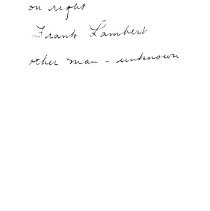 on right
Frank Lambert
other man - unknown